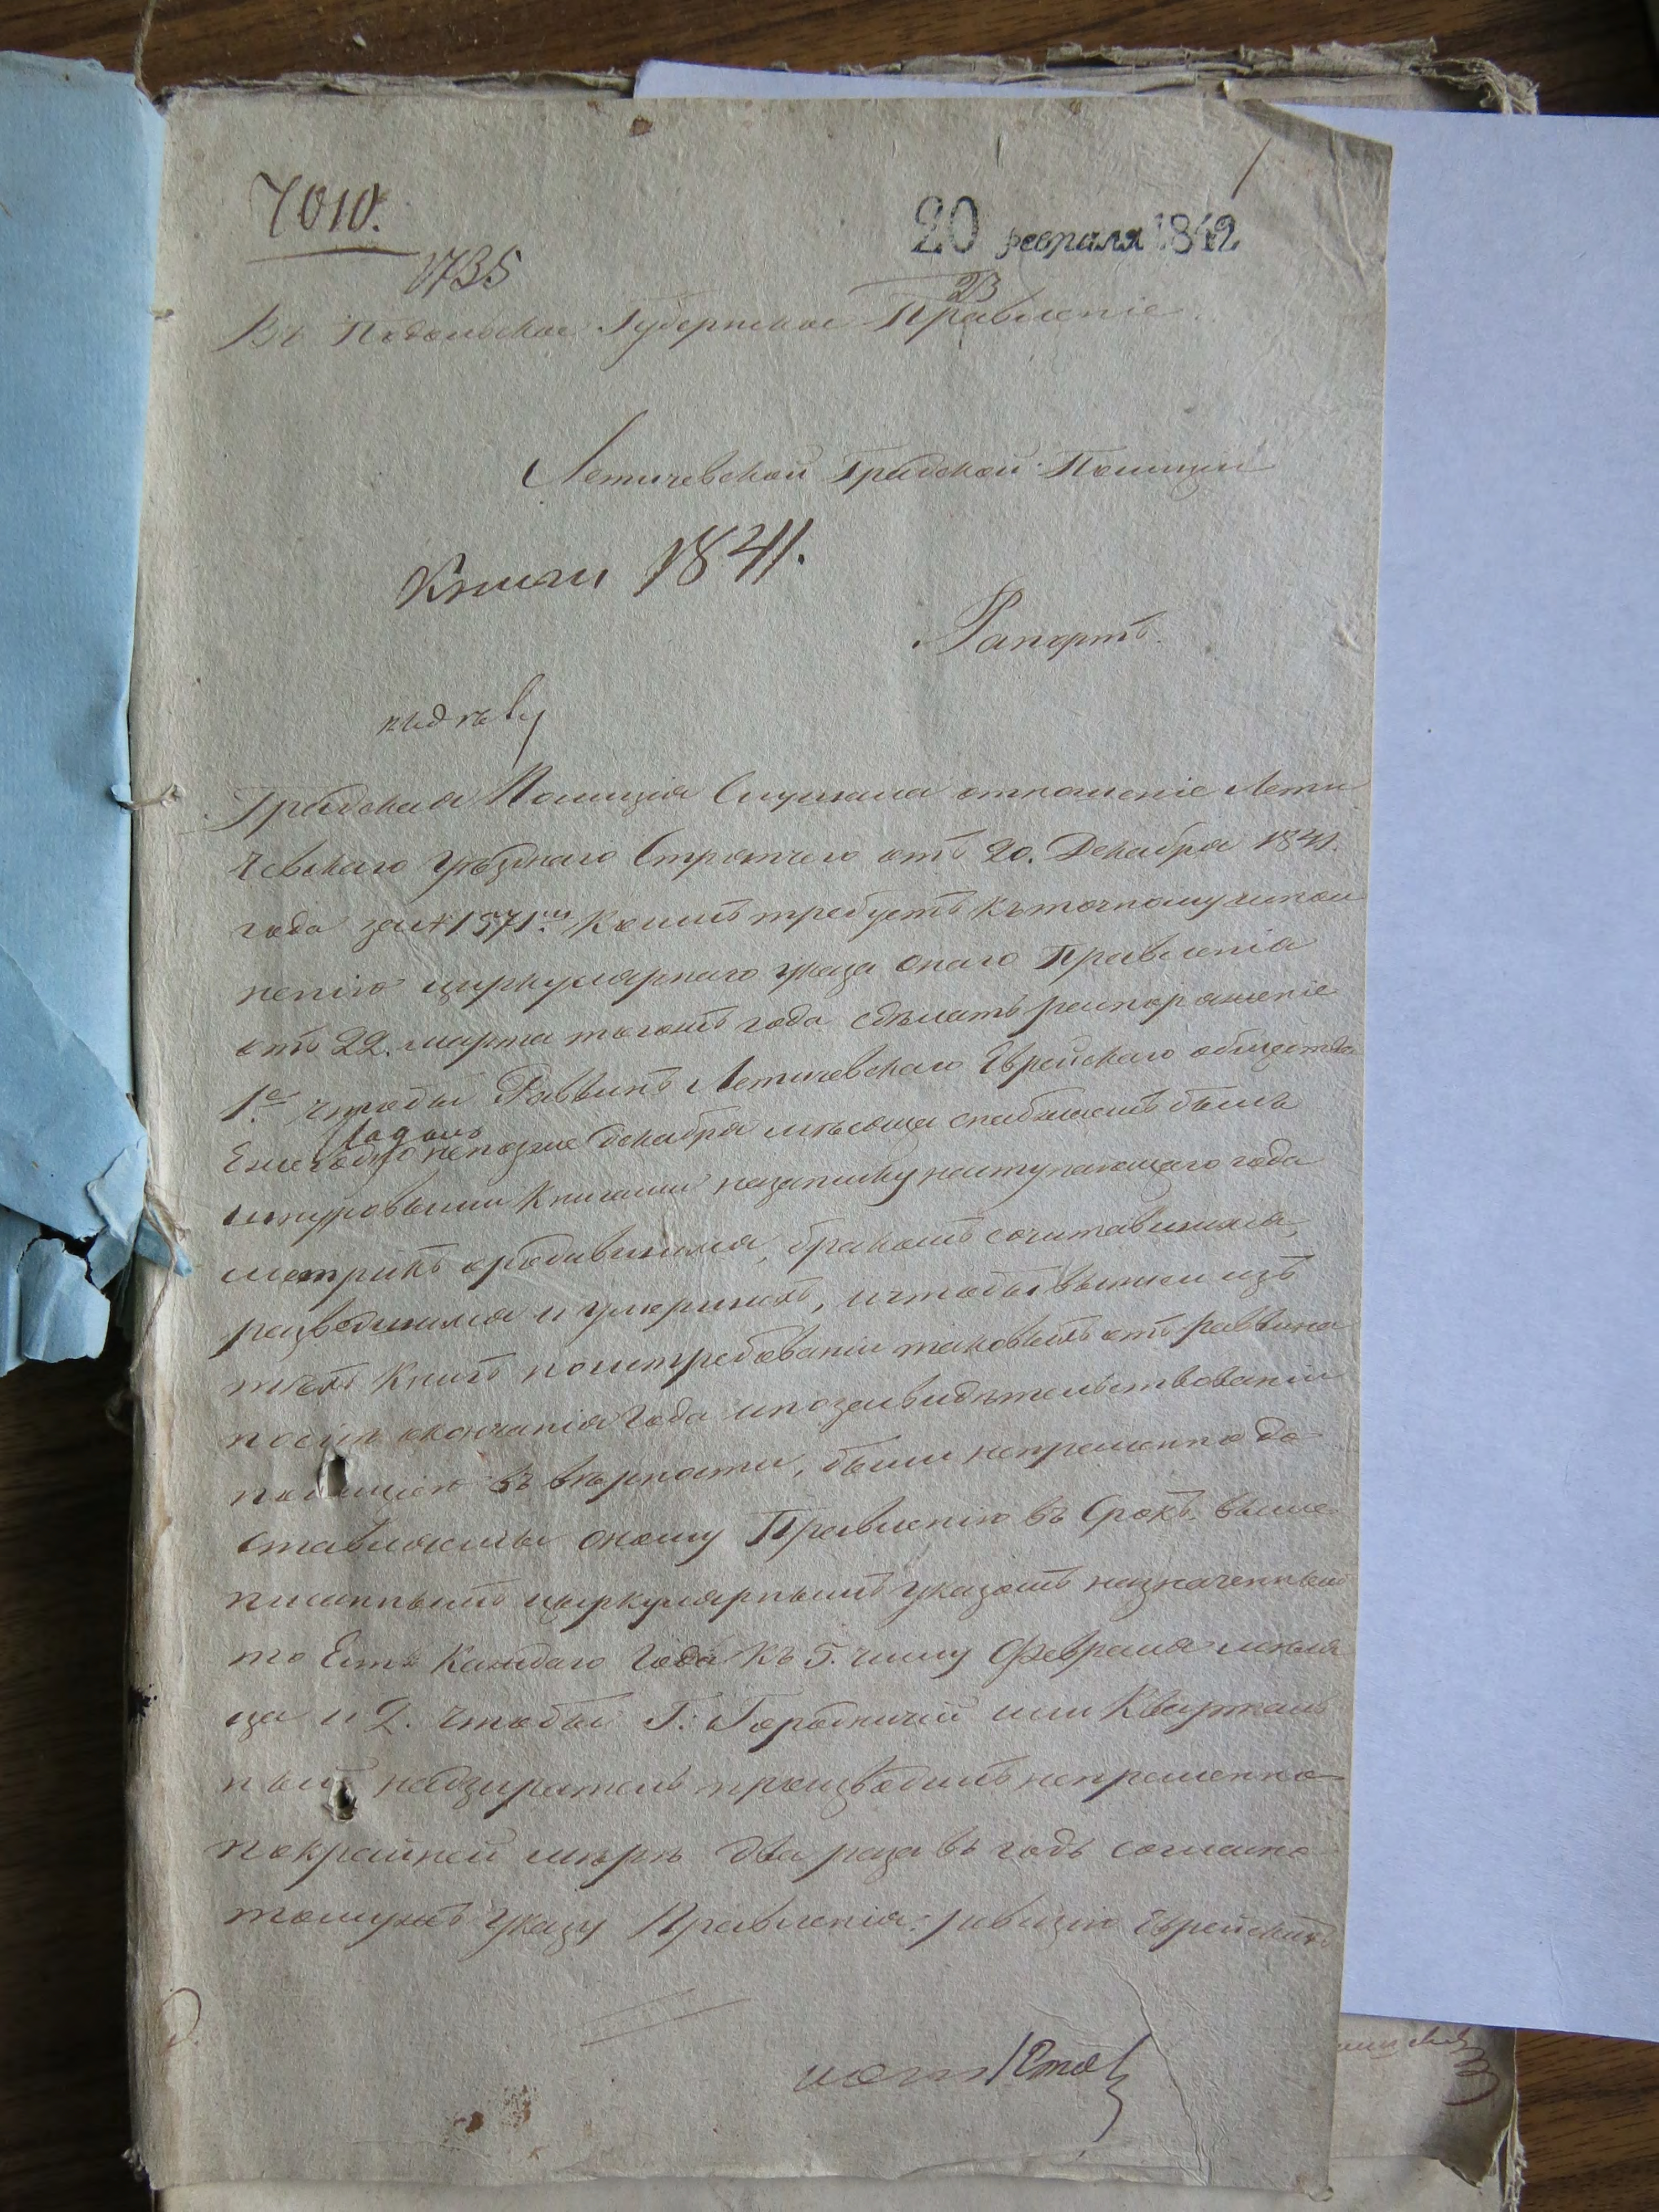 7010.
1
20 февраля 1842
1735
23
Въ Подольское Губернское Правленіе.
Летичевской Градской Полиции
Книги 1841.
Рапортъ.
Градская Полиція Слушала отношеніе Лети
чевскаго уѣзднаго Стряпчего отъ 20. Декабря 1841.
года за № 1571.мъ Коимъ требуетъ къ точному испол
ненію циркулярнаго указа онаго Правленія
отъ 22. марта тогожъ года сдѣлать распоряженіе
1е. чтобы Раввинъ Летичевскаго Еврейскаго общества
Ежегодно непозже декабря мѣсяца снабжаемъ былъ
шнуровыми Книгами на записку наступающаго года
метрикъ о родившихся, бракомъ сочитавшихся,
разведшихся и умершихъ, и чтобы выписи изъ
тѣхъ Книгъ по истребованіи таковыхъ отъ раввина
послѣ окончанія года и по засвидѣтельствованіи
полициею въ вѣрности, были непременно до
ставляемы оному Правленію въ Срокъ выше
писаннымъ цыркулярнымъ указомъ назначенный
то Есть Каждаго Года къ 5. числу Февраля мѣся
ца и 2. чтобы Г: Городничій или Квартань
ный надзиратель производилъ непременно
покрайней мѣрѣ два раза въ годъ согласно
томужъ указу Правленія: ревизію Еврейскихъ